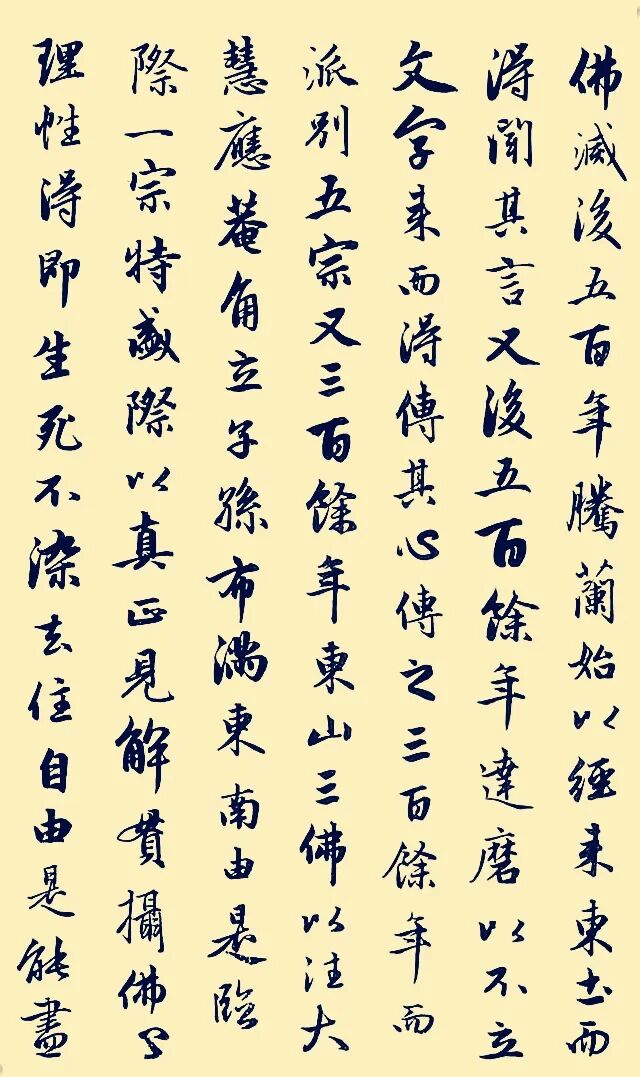 佛滅後五百年騰蘭始以經來東土而
得聞其言又後五百餘年達磨以不立
文字來而得傳其心傳之三百餘年而
派別五宗又三百餘年東山三佛以往大
慧應菴角立子孫布滿東南由是臨
際一宗特盛際以真正見解貫攝佛
理性得即生死不染去住自由是能盡